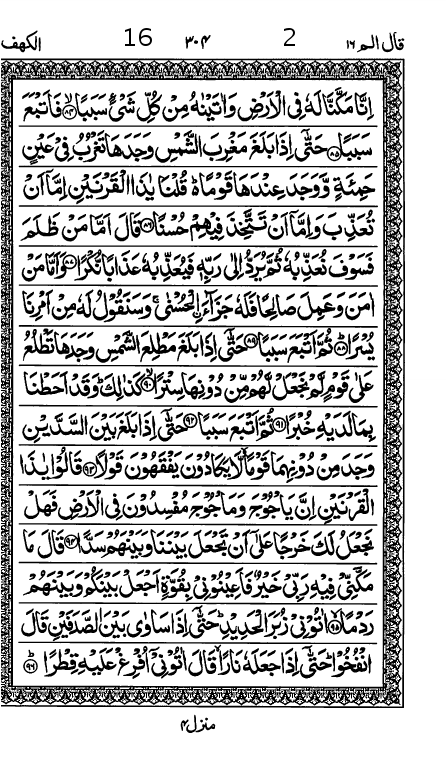 قال الم ١٦ 2 ٣٠٤ 16 الكهف
اِنَّا مَكَّنَّا لَهٗ فِی الْاَرْضِ وَاٰتَیْنٰهُ مِنْ كُلِّ شَیْءٍ سَبَبًا ﴿٨٤﴾ۙ فَاَتْبَعَ
سَبَبًا ﴿٨٥﴾ حَتّٰۤی اِذَا بَلَغَ مَغْرِبَ الشَّمْسِ وَجَدَهَا تَغْرُبُ فِیْ عَیْنٍ
حَمِئَةٍ وَّوَجَدَ عِنْدَهَا قَوْمًا ۬ؕ قُلْنَا یٰذَا الْقَرْنَیْنِ اِمَّاۤ اَنْ
تُعَذِّبَ وَاِمَّاۤ اَنْ تَتَّخِذَ فِیْهِمْ حُسْنًا ﴿٨٦﴾ قَالَ اَمَّا مَنْ ظَلَمَ
فَسَوْفَ نُعَذِّبُهٗ ثُمَّ یُرَدُّ اِلٰی رَبِّهٖ فَیُعَذِّبُهٗ عَذَابًا نُّكْرًا ﴿٨٧﴾ وَاَمَّا مَنْ
اٰمَنَ وَعَمِلَ صَالِحًا فَلَهٗ جَزَآءَ ۨالْحُسْنٰی ۚ وَسَنَقُوْلُ لَهٗ مِنْ اَمْرِنَا
یُسْرًا ﴿٨٨﴾ؕ ثُمَّ اَتْبَعَ سَبَبًا ﴿٨٩﴾ حَتّٰۤی اِذَا بَلَغَ مَطْلِعَ الشَّمْسِ وَجَدَهَا تَطْلُعُ
عَلٰی قَوْمٍ لَّمْ نَجْعَلْ لَّهُمْ مِّنْ دُوْنِهَا سِتْرًا ﴿٩٠﴾ۙ كَذٰلِكَ ؕ وَقَدْ اَحَطْنَا
بِمَا لَدَیْهِ خُبْرًا ﴿٩١﴾ ثُمَّ اَتْبَعَ سَبَبًا ﴿٩٢﴾ حَتّٰۤی اِذَا بَلَغَ بَیْنَ السَّدَّیْنِ
وَجَدَ مِنْ دُوْنِهِمَا قَوْمًا ۙ لَّا یَكَادُوْنَ یَفْقَهُوْنَ قَوْلًا ﴿٩٣﴾ قَالُوْا یٰذَا
الْقَرْنَیْنِ اِنَّ یَاْجُوْجَ وَمَاْجُوْجَ مُفْسِدُوْنَ فِی الْاَرْضِ فَهَلْ
نَجْعَلُ لَكَ خَرْجًا عَلٰۤی اَنْ تَجْعَلَ بَیْنَنَا وَبَیْنَهُمْ سَدًّا ﴿٩٤﴾ قَالَ مَا
مَكَّنِّیْ فِیْهِ رَبِّیْ خَیْرٌ فَاَعِیْنُوْنِیْ بِقُوَّةٍ اَجْعَلْ بَیْنَكُمْ وَبَیْنَهُمْ
رَدْمًا ﴿٩٥﴾ۙ اٰتُوْنِیْ زُبَرَ الْحَدِیْدِ ؕ حَتّٰۤی اِذَا سَاوٰی بَیْنَ الصَّدَفَیْنِ قَالَ
انْفُخُوْا ؕ حَتّٰۤی اِذَا جَعَلَهٗ نَارًا ۙ قَالَ اٰتُوْنِیْۤ اُفْرِغْ عَلَیْهِ قِطْرًا ﴿٩٦﴾ؕ
منزل ٤